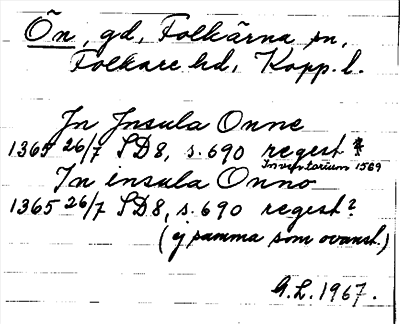 Ön, gd, Folkärna sn,
Folkare hd, Kopp. l.
In Insula Onne
1365 26/7 SD8, s. 690 regest *
Inventarium 1569
In insula Onno
1365 26/7 SD8, s. 690 regest?
(ej samma som ovanst.)
G.L. 1967.